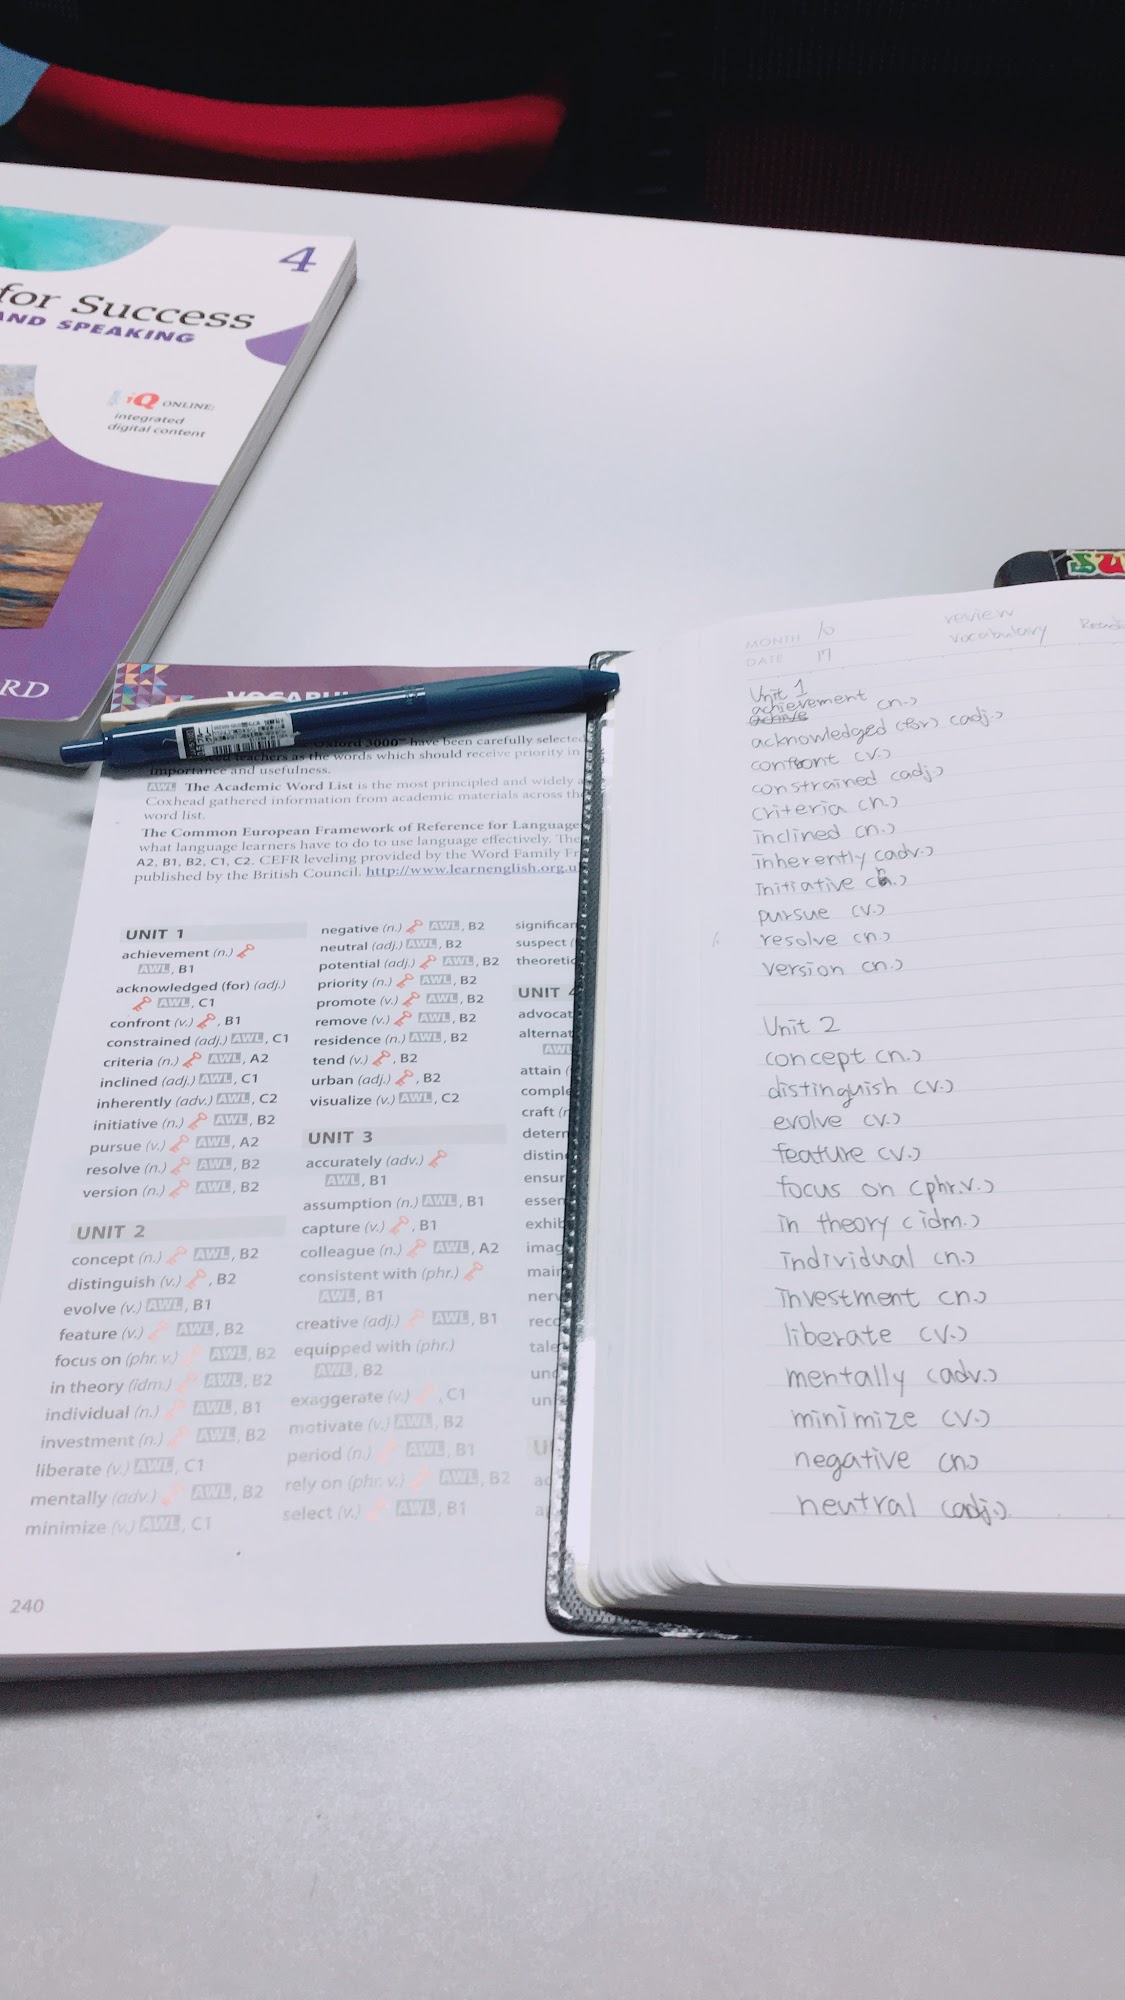 4
for Success
AND SPEAKING
iQ ONLINE:
integrated
digital content
RD
VOCABU
Oxford 3000™ have been carefully selected
teachers as the words which should receive priority in
importance and usefulness.
AWL The Academic Word List is the most principled and widely
Coxhead gathered information from academic materials across the
word list.
The Common European Framework of Reference for Language
what language learners have to do to use language effectively. The
A2, B1, B2, C1, C2. CEFR leveling provided by the Word Family Fr
published by the British Council. http://www.learnenglish.org.u
UNIT 1
achievement (n.)
AWL, B1
acknowledged (for) (adj.)
AWL, C1
confront (v.) , B1
constrained (adj.) AWL, C1
criteria (n.) AWL, A2
inclined (adj.) AWL, C1
inherently (adv.) AWL, C2
initiative (n.) AWL, B2
pursue (v.) AWL, A2
resolve (n.) AWL, B2
version (n.) AWL, B2
UNIT 2
concept (n.) AWL, B2
distinguish (v.) , B2
evolve (v.) AWL, B1
feature (v.) AWL, B2
focus on (phr. v.) AWL, B2
in theory (idm.) AWL, B2
individual (n.) AWL, B1
investment (n.) AWL, B2
liberate (v.) AWL, C1
mentally (adv.) AWL, B2
minimize (v.) AWL, C1
240
negative (n.) AWL, B2
neutral (adj.) AWL, B2
potential (adj.) AWL, B2
priority (n.) AWL, B2
promote (v.) AWL, B2
remove (v.) AWL, B2
residence (n.) AWL, B2
tend (v.) , B2
urban (adj.) , B2
visualize (v.) AWL, C2
UNIT 3
accurately (adv.)
AWL, B1
assumption (n.) AWL, B1
capture (v.) , B1
colleague (n.) AWL, A2
consistent with (phr.)
AWL, B1
creative (adj.) AWL, B1
equipped with (phr.)
AWL, B2
exaggerate (v.) , C1
motivate (v.) AWL, B2
period (n.) AWL, B1
rely on (phr. v.) AWL, B2
select (v.) AWL, B1
significan
suspect (
theoretic
UNIT 4
advocat
alternat
AWL
attain (
comple
craft (r
determ
distin
ensur
essen
exhib
imag
main
nerv
reco
tale
und
un
U
ad
a
MONTH 10
DATE 17
review
vocabulary
Unit 1
achievement (n.)
acknowledged (for) (adj.)
confront (v.)
constrained (adj.)
criteria (n.)
inclined (n.)
inherently (adv.)
initiative (n.)
pursue (v.)
resolve (n.)
version (n.)
Unit 2
concept (n.)
distinguish (v.)
evolve (v.)
feature (v.)
focus on (phr.v.)
in theory (idm.)
individual (n.)
investment (n.)
liberate (v.)
mentally (adv.)
minimize (v.)
negative (n)
neutral (adj.)